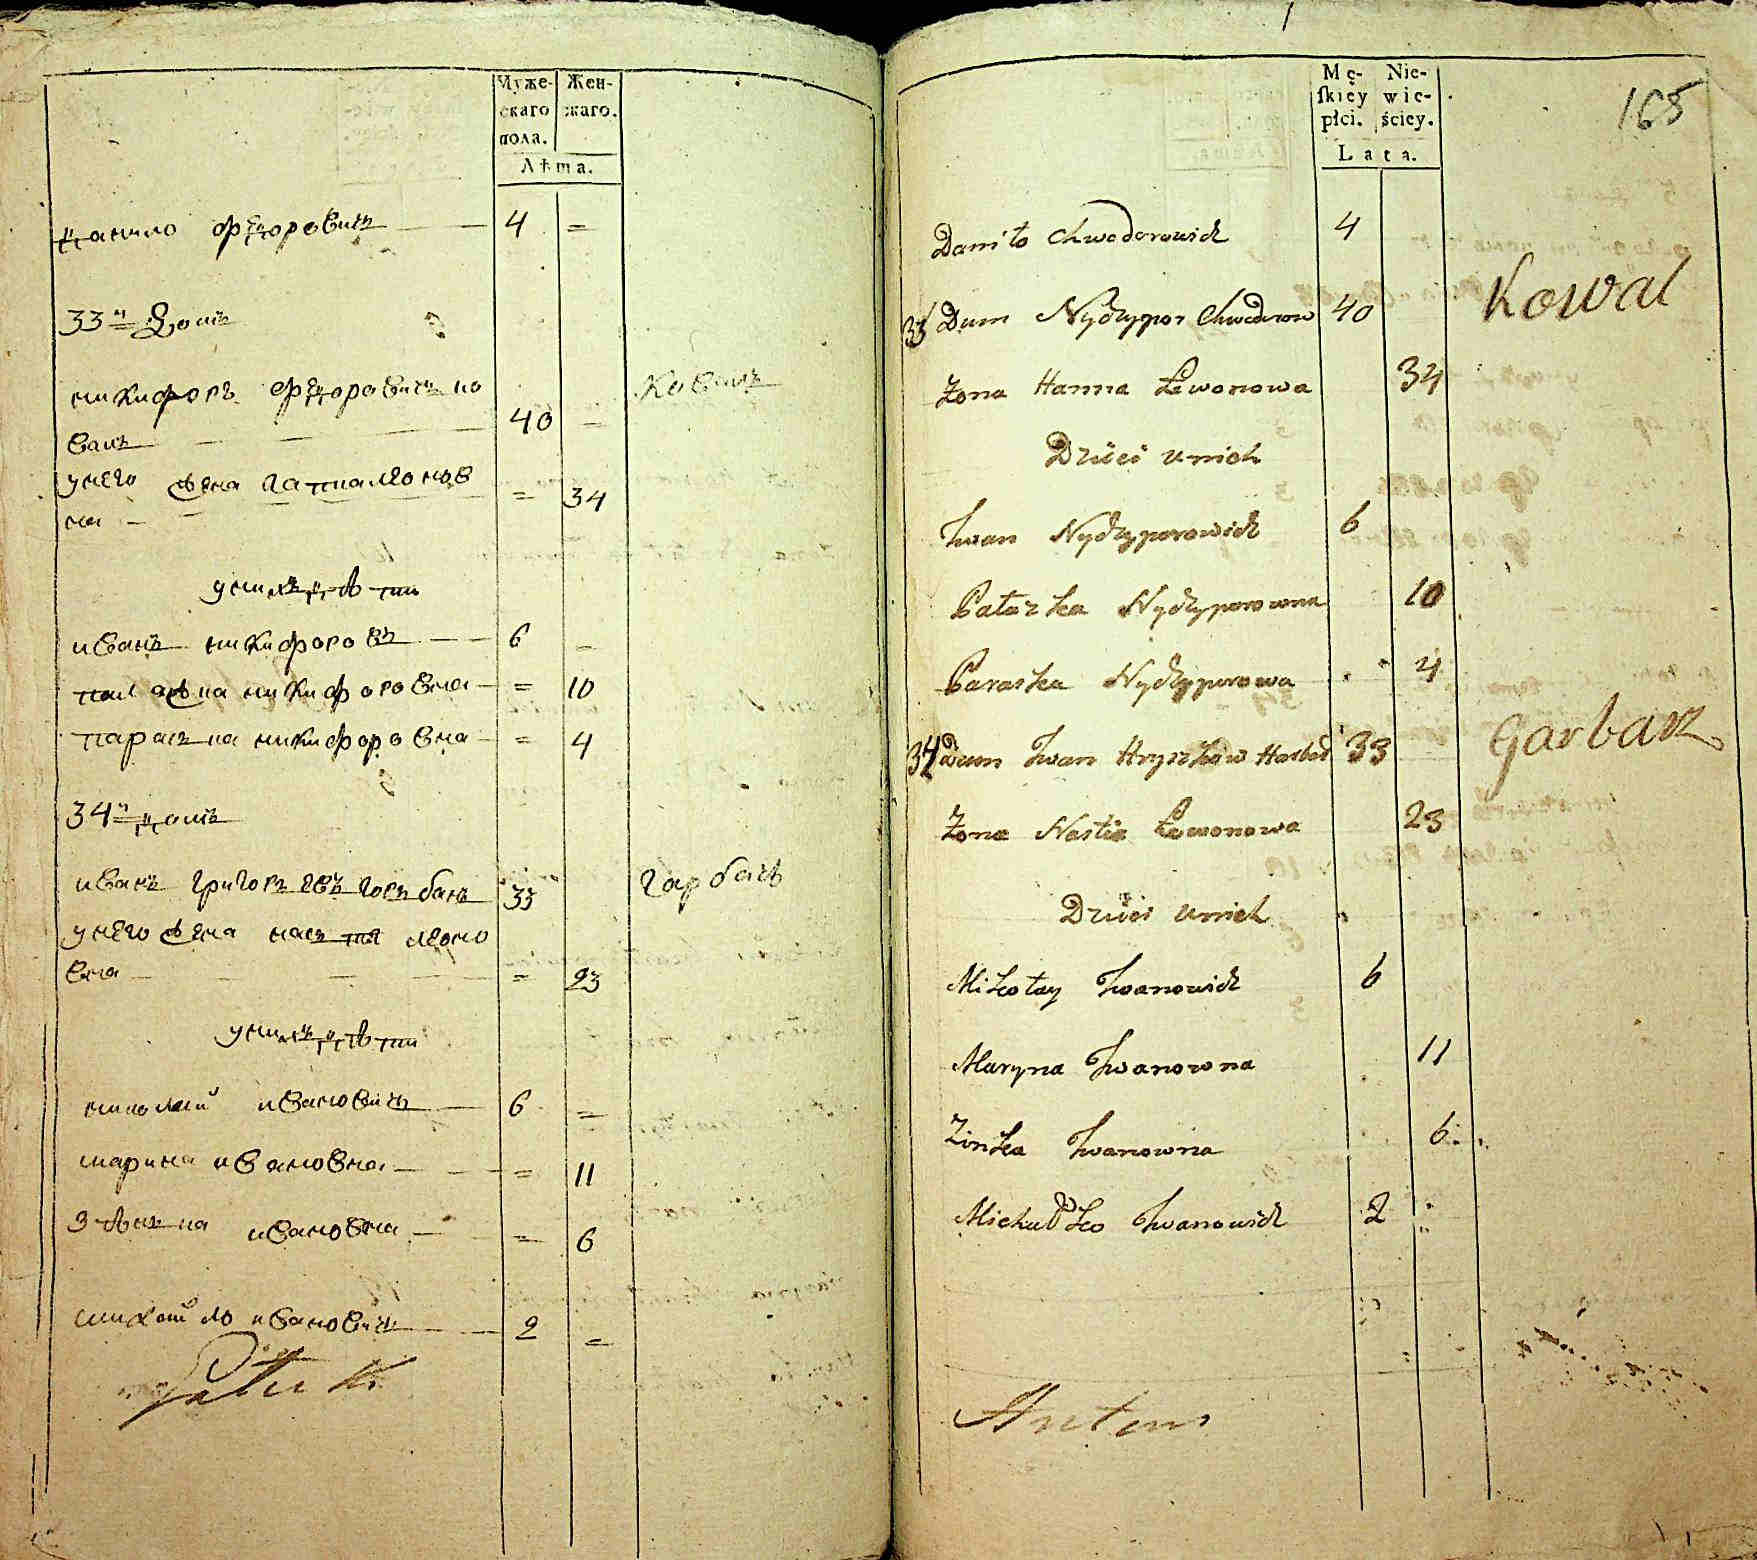 Муже-
скаго
пола.
Жен-
скаго.
Лѣта.
Данило Фёдоровичъ 4 =
33й Домъ
никифоръ Фёдоровичъ ко
валъ 40 = Ковалъ
унего жена Ганна леонов
на = 34
унихъ дѣти
иванъ никифоровъ 6 =
палажка никифоровна = 10
параска никифоровна = 4
34й домъ
иванъ григорьевъ гарбаръ 33 гарбаръ
унего жена настя леоно
вна = 23
унихъ дѣти
николай ивановичъ 6 =
марина ивановна = 11
зѣнька ивановна = 6
михайло ивановичъ 2 =
165
Mę-
skiey
płci.
Nie-
wie-
ściey.
Lata.
Daniło Chwedorowicz 4
33 Dum Nyczypor Chwedorow 40 Kowal
Żona Hanna Lewonowa 34
Dzieci u nich
Iwan Nyczyporowicz 6
Pałazka Nyczyporowna 10
Paraska Nyczyporowa 4
34 Dum Iwan Hryszkow Harbar 33 Garbarz
Żona Nastia Lewonowa 23
Dzieci u nich
Mikołay Iwanowicz 6
Maryna Iwanowna 11
Zinka Iwanowna 6
Michałko Iwanowicz 2